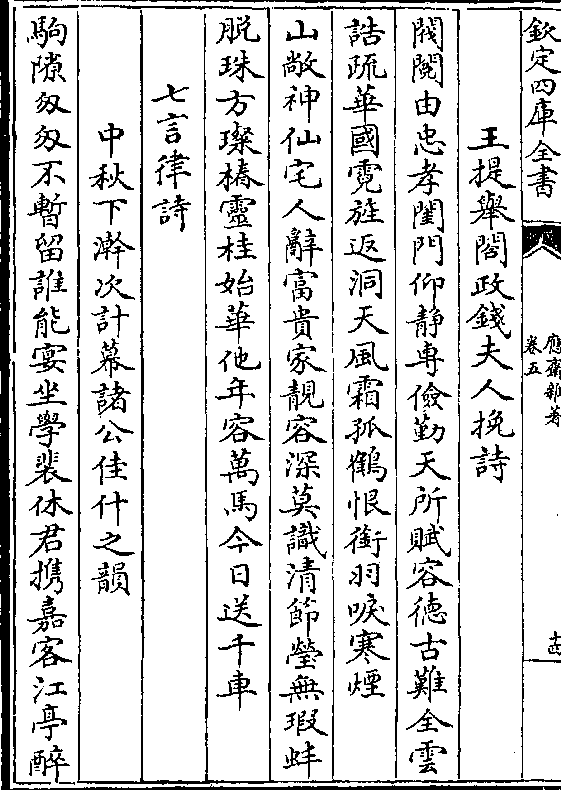 欽定四庫全書
應齋雜著
卷五
十四
王提舉閤政錢夫人挽詩
閥閱由忠孝閨門仰静専儉勤天所賦容徳古難全雲
誥疏華國霓旌返洞天風霜孤鶴恨銜羽唳寒煙
山敞神仙宅人辭富貴家靚容深莫識清節瑩無瑕蚌
脱珠方璨椿靈桂始華他年容萬馬今日送千車
七言律詩
中秋下澣次計幕諸公佳什之韻
駒隙匆匆不暫留誰能宴坐學裴休君携嘉客江亭醉